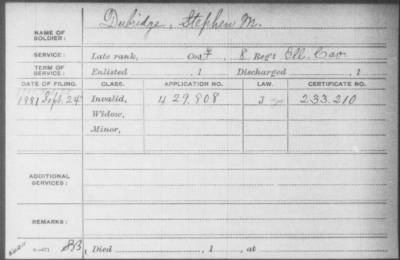 NAME OF SOLDIER: Dubridge, Stephen M.
SERVICE: Late rank, Co. F, 8 Reg't Ill. Cav.
TERM OF SERVICE: Enlisted , 1 Discharged , 1
DATE OF FILING. CLASS. APPLICATION NO. LAW. CERTIFICATE NO.
1881 Sept. 24 Invalid, 429.808 233.210
Widow,
Minor,
ADDITIONAL SERVICES:
REMARKS:
Died , 1 , at